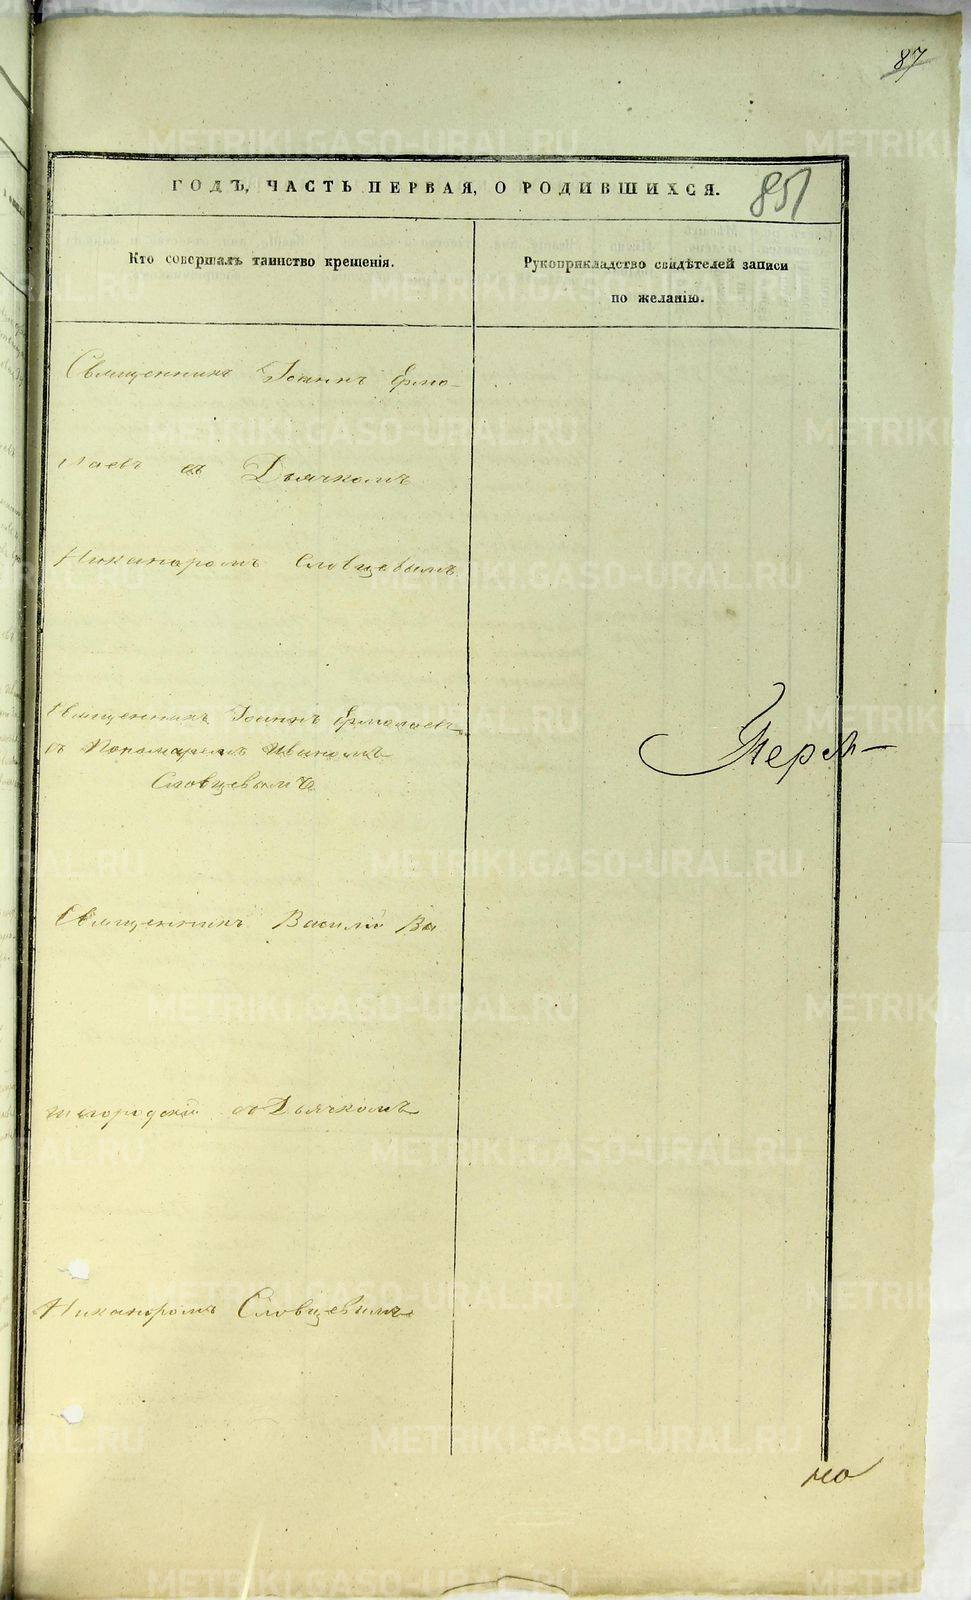 87
ГОДЪ, ЧАСТЬ ПЕРВАЯ, О РОДИВШИХСЯ.
851
Кто совершалъ таинство крещенія.
Рукоприкладство свидѣтелей записи
по желанію.
Священникъ Іоаннъ Ермо-
лаевъ съ Дьячкомъ
Никаноромъ Словцевымъ
Священникъ Іоаннъ Ермолаевъ
съ Пономаремъ Иваномъ
Словцевымъ
Священникъ Василій Вы
шегородскій съ Дьячкомъ
Никаноромъ Словцевымъ
METRIKI.GASO-URAL.RU